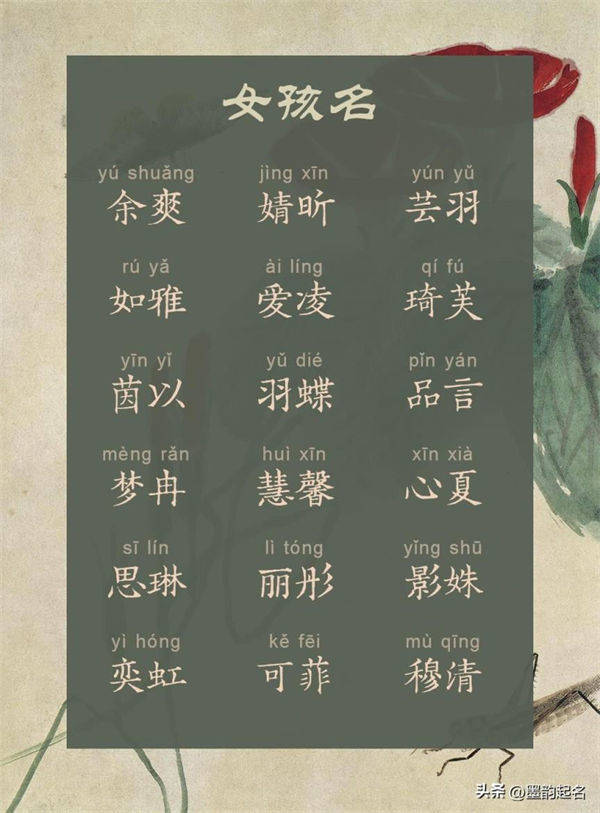 女孩名
yú shuǎng jìng xīn yún yǔ
余爽 婧昕 芸羽
rú yǎ ài líng qí fú
如雅 爱凌 琦芙
yīn yǐ yǔ dié pǐn yán
茵以 羽蝶 品言
mèng rǎn huì xīn xīn xià
梦冉 慧馨 心夏
sī lín lì tóng yǐng shū
思琳 丽彤 影姝
yì hóng kě fēi mù qīng
奕虹 可菲 穆清
头条 @墨韵起名